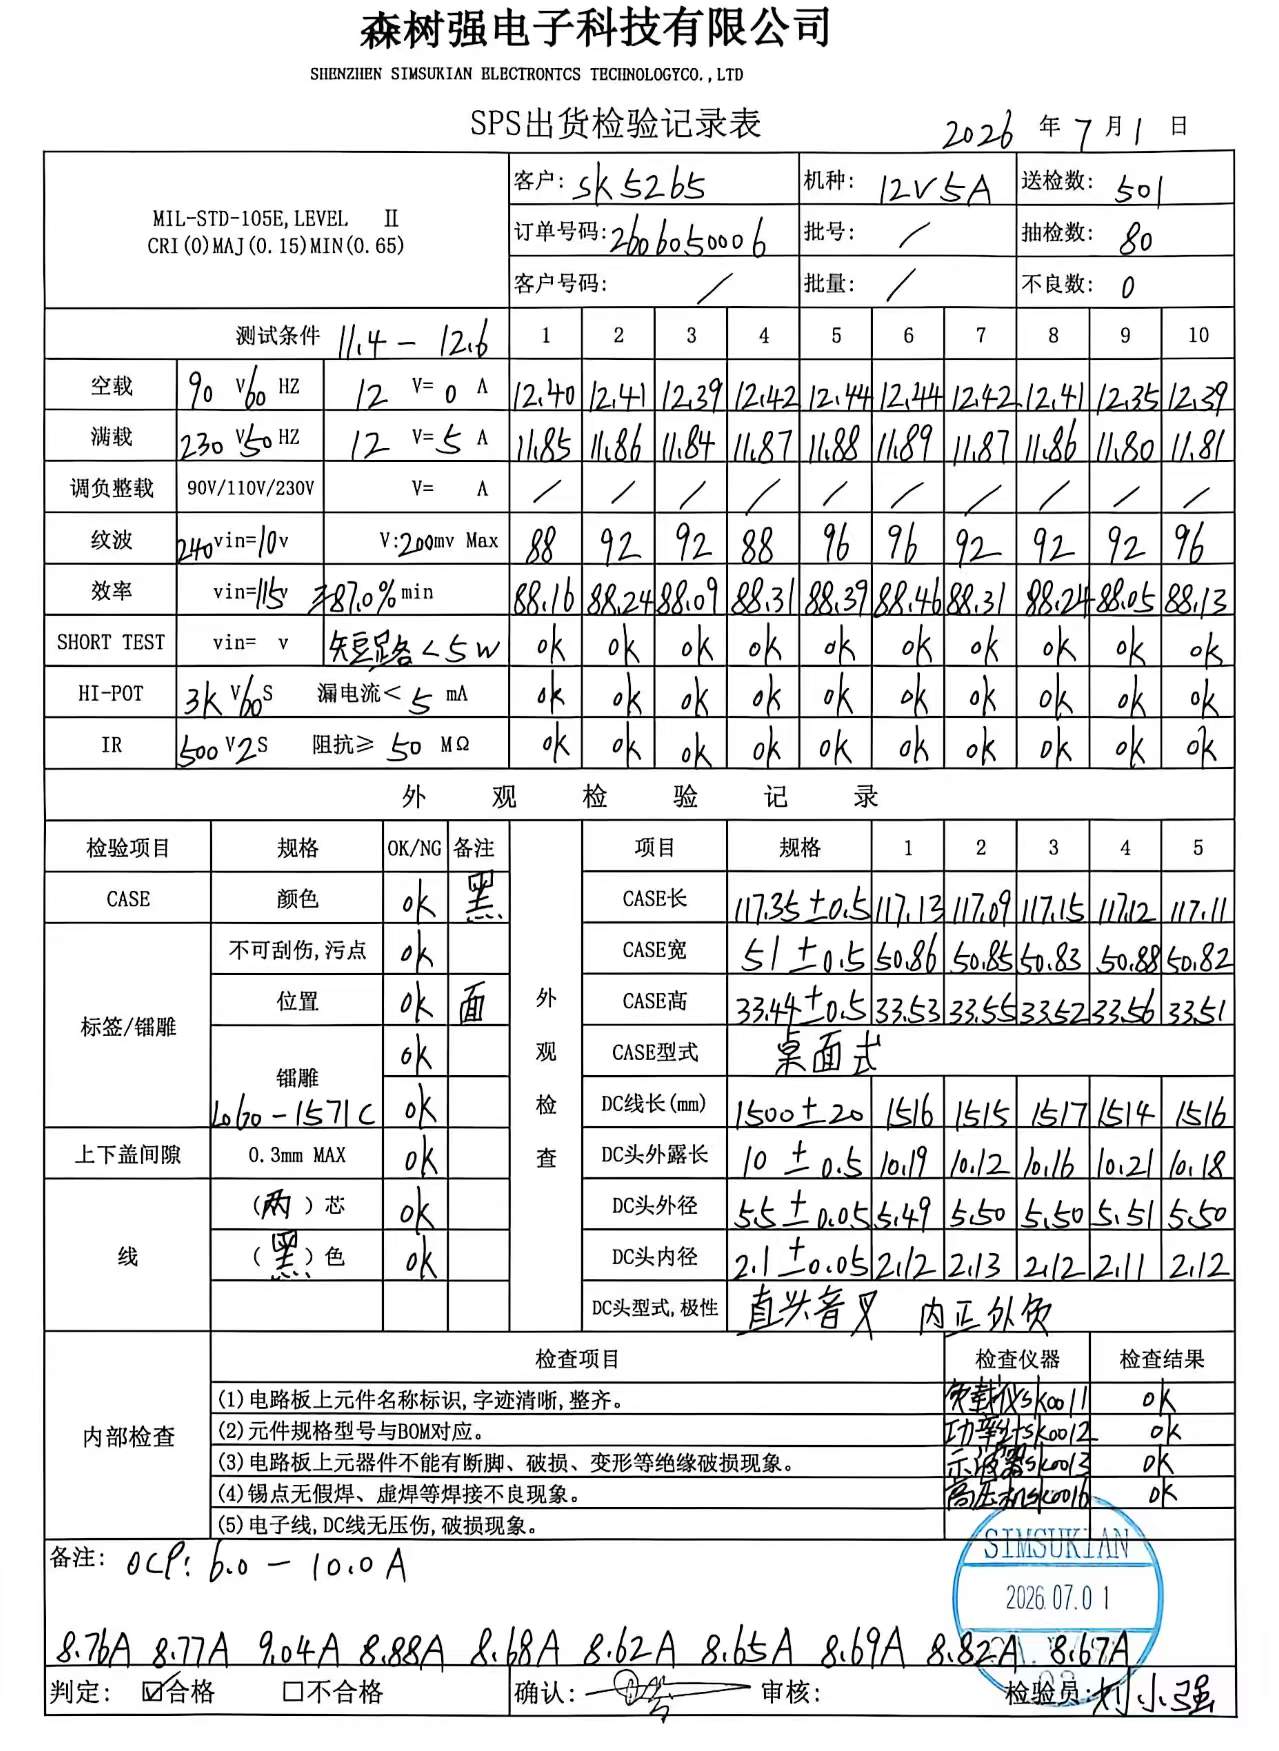 森树强电子科技有限公司
SHENZHEN SIMSUKIAN ELECTRONTCS TECHNOLOGYCO.,LTD
SPS出货检验记录表 2026 年 7 月 1 日
MIL-STD-105E,LEVEL Ⅱ
CRI(0)MAJ(0.15)MIN(0.65)
客户: SK5265 机种: 12V5A 送检数: 501
订单号码: 2606050006 批号: / 抽检数: 80
客户号码: / 批量: / 不良数: 0
测试条件 11.4-12.6 1 2 3 4 5 6 7 8 9 10
空载 90 V 60 HZ 12 V= 0 A 12.40 12.41 12.39 12.42 12.44 12.44 12.42 12.41 12.35 12.39
满载 230 V 50 HZ 12 V= 5 A 11.85 11.86 11.84 11.87 11.88 11.89 11.87 11.86 11.80 11.81
调负整载 90V/110V/230V V= A / / / / / / / / / /
纹波 240 vin=10v V:200mv Max 88 92 92 88 96 96 92 92 92 96
效率 vin=115v ≥87.0% min 88.16 88.24 88.09 88.31 88.39 88.46 88.31 88.24 88.05 88.13
SHORT TEST vin= v 短路<5W OK OK OK OK OK OK OK OK OK OK
HI-POT 3K V 60 S 漏电流< 5 mA OK OK OK OK OK OK OK OK OK OK
IR 500 V 2 S 阻抗≥ 50 MΩ OK OK OK OK OK OK OK OK OK OK
外观检验记录
检验项目 规格 OK/NG 备注 项目 规格 1 2 3 4 5
CASE 颜色 OK 黑 CASE长 117.35±0.5 117.13 117.09 117.15 117.12 117.11
标签/镭雕 不可刮伤,污点 OK CASE宽 51±0.5 50.86 50.85 50.83 50.88 50.82
位置 OK 面 外观检查 CASE高 33.44±0.5 33.53 33.55 33.52 33.56 33.51
OK CASE型式 桌面式
镭雕 L060-1571C OK DC线长(mm) 1500±20 1516 1515 1517 1514 1516
上下盖间隙 0.3mm MAX OK DC头外露长 10±0.5 10.19 10.12 10.16 10.21 10.18
线 (两)芯 OK DC头外径 5.5±0.05 5.49 5.50 5.50 5.51 5.50
(黑)色 OK DC头内径 2.1±0.05 2.12 2.13 2.12 2.11 2.12
DC头型式,极性 直头音叉 内正外负
内部检查 检查项目 检查仪器 检查结果
(1)电路板上元件名称标识,字迹清晰,整齐。 负载仪SK0011 OK
(2)元件规格型号与BOM对应。 功率计SK0012 OK
(3)电路板上元器件不能有断脚、破损、变形等绝缘破损现象。 示波器SK0013 OK
(4)锡点无假焊、虚焊等焊接不良现象。 高压机SK0016 OK
(5)电子线,DC线无压伤,破损现象。
备注: OCP: 6.0-10.0A
SIMSUKIAN
2026.07.01
8.76A 8.77A 9.04A 8.88A 8.68A 8.62A 8.65A 8.69A 8.82A 8.67A
判定: ☑合格 □不合格 确认: 审核: 检验员: 刘小强